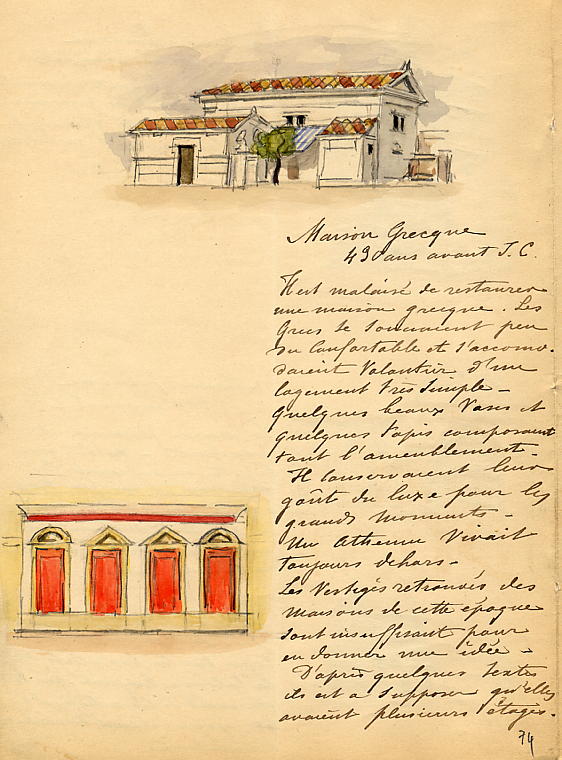 Maison Grecque
490 ans avant J. C.
Il est malaisé de restaurer
une maison grecque. Les
Grecs se souciaient peu
du Confortable et s'accomo-
daient Volontier d'un
logement très simple -
quelques beaux Vases et
quelques tapis composaient
tout l'ameublement -
Il Conservaient leur
goût du luxe pour les
grands moments -
Un Athénien Vivait
toujours dehors -
Les Vestiges retrouvés des
maisons de cette époque
sont insuffisant pour
en donner une idée -
D'après quelques textes
ils est a supposer qu'elles
avaient plusieurs étages.
74